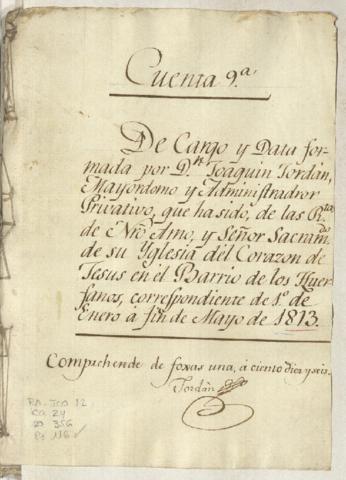 Cuenta 9.a
De Cargo y Data for-
mada por D.n Joaquin Jordán,
Mayordomo y Administradror
Privativo, que ha sido, de las Rtas
de Nrô Amo, y Señor Sacramdo
de su Yglesia del Corazon de
Jesus en el Barrio de los Huer-
fanos, correspondiente de 1º de
Enero à fin de Mayo de 1813.
Comprehende de foxas una, à ciento diez y seis.
Jordán
CO. 24
D 356
Po 116